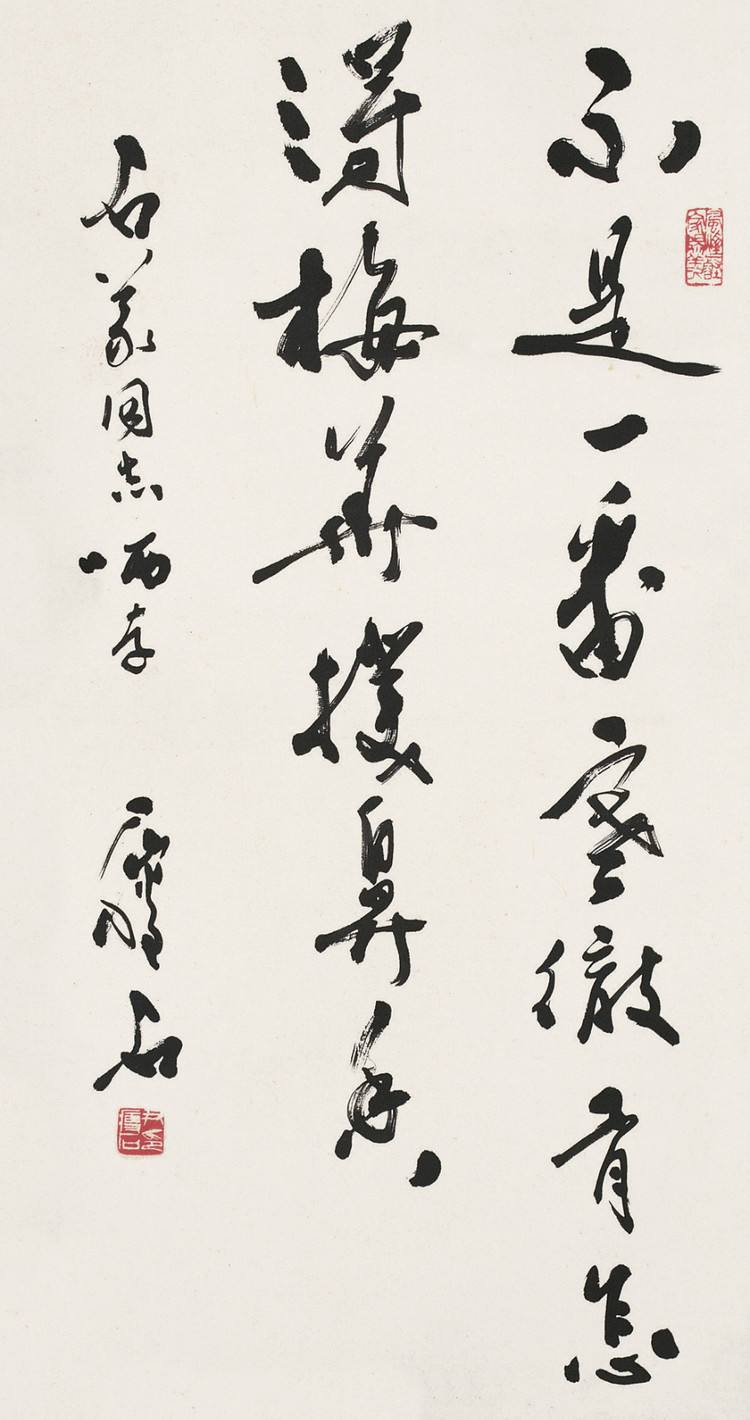 不是一番寒徹骨怎
得梅華撲鼻香
石同志哂存 瘦石